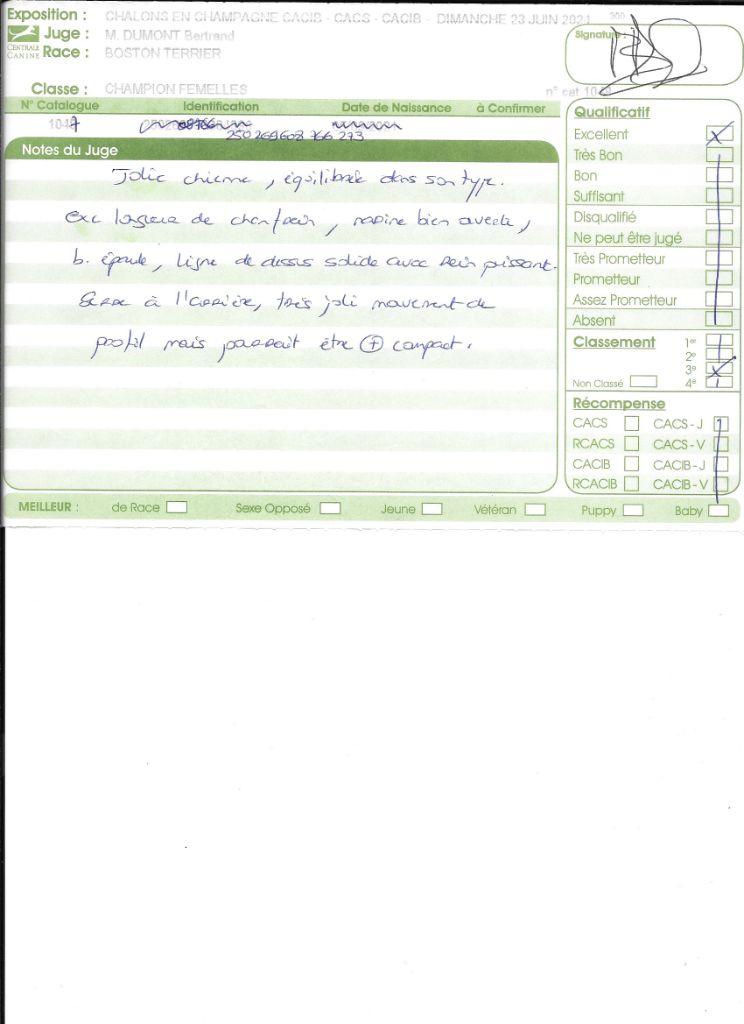 Exposition : CHALONS EN CHAMPAGNE CACIB - CACS - CACIB - DIMANCHE 23 JUIN 2024
Juge : M. DUMONT Bertrand
CENTRALE CANINE
Race : BOSTON TERRIER
Signature :
Classe : CHAMPION FEMELLES
n° cat
N° Catalogue Identification Date de Naissance à Confirmer
1047
250 269 608 766 273
Notes du Juge
Jolie chienne, équilibrée dans son type.
exc longueur de chanfrein, narine bien ouverte,
b. épaule, ligne de dessus solide avec rein puissant.
Serre à l'arrière, très joli mouvement de
profil mais pourrait être + compact.
Qualificatif
Excellent X
Très Bon
Bon
Suffisant
Disqualifié
Ne peut être jugé
Très Prometteur
Prometteur
Assez Prometteur
Absent
Classement 1er
2e
3e X
Non Classé 4e
Récompense
CACS CACS - J
RCACS CACS - V
CACIB CACIB - J
RCACIB CACIB - V
MEILLEUR : de Race Sexe Opposé Jeune Vétéran Puppy Baby